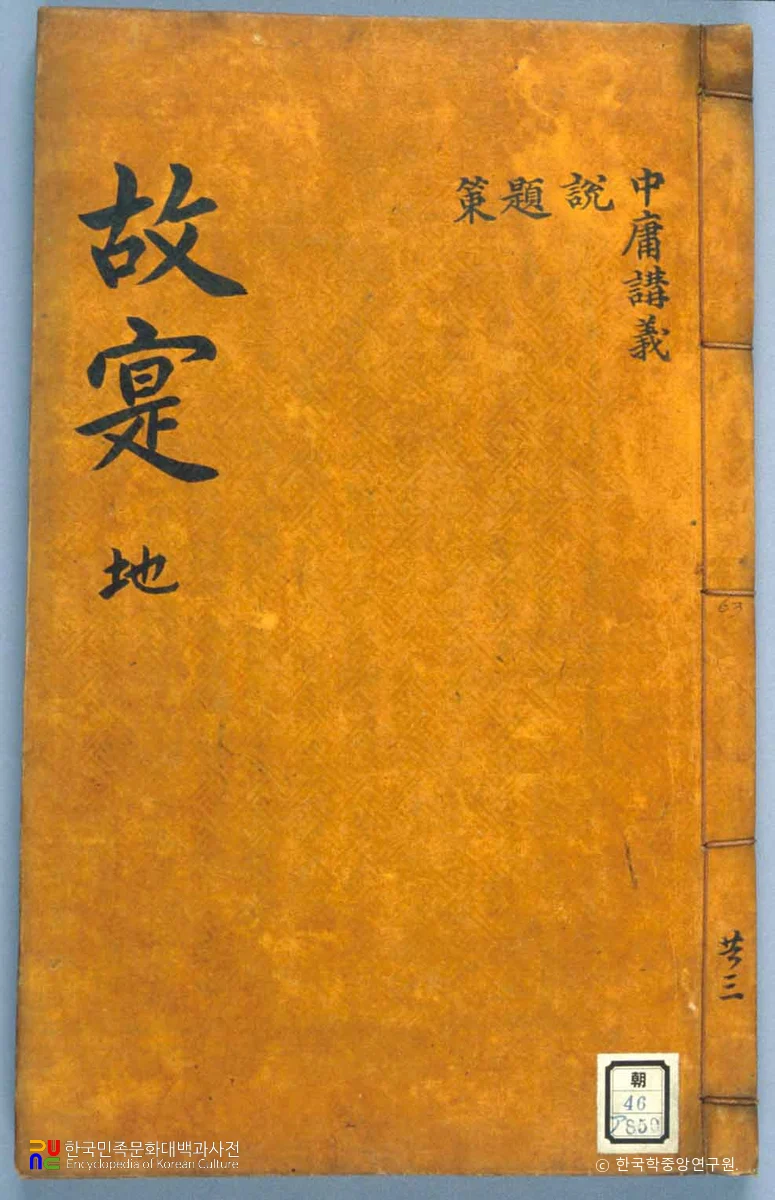 中庸講義
說
題
策
故寔 地
共三
63
朝
46
한국민족문화대백과사전
Encyclopedia of Korean Culture
© 한국학중앙연구원